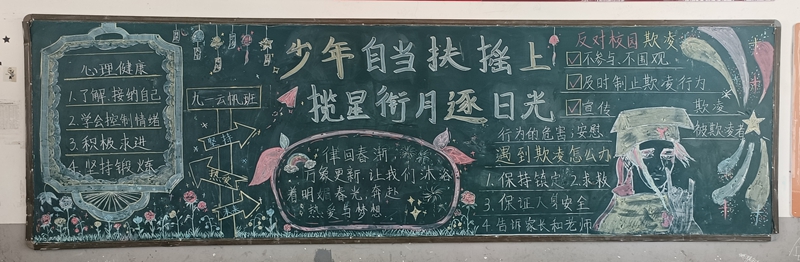 心理健康
1.了解.接纳自己
2.学会控制情绪
3.积极求进
4.坚持锻炼
九一云帆班
坚持
热爱
少年自当扶摇上
揽星衔月逐日光
律回春渐,
万象更新,让我们沐浴
着明媚春光,奔赴
热爱与梦想
反对校园欺凌
不参与.不围观
及时制止欺凌行为
宣传 欺凌
行为的危害;安慰 被欺凌者
遇到欺凌怎么办
1.保持镇定 2.求救
3.保证人身安全
4.告诉家长和老师